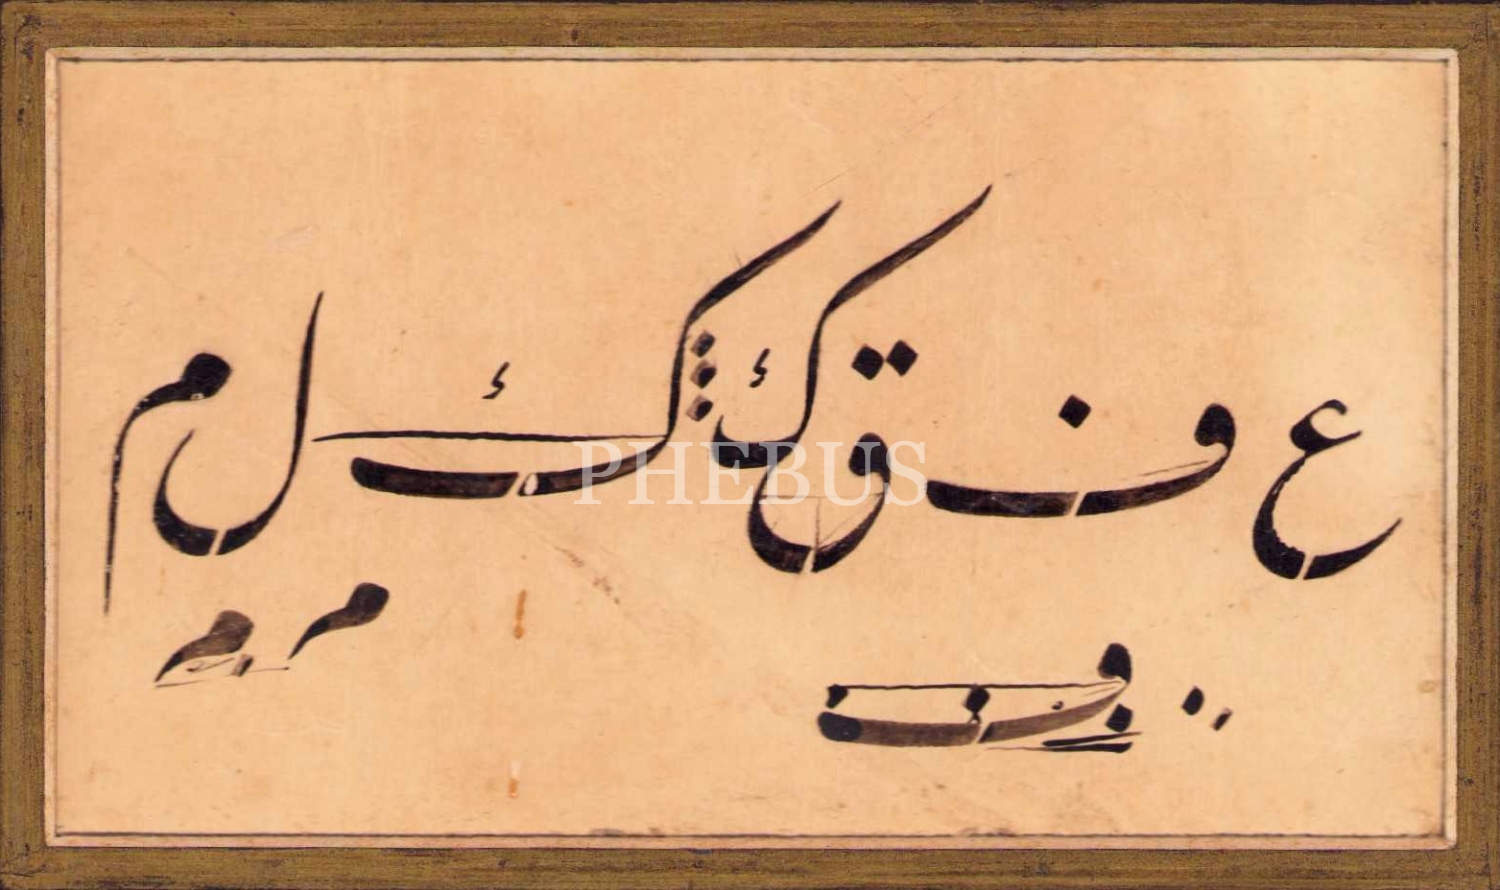 ع ف ق ك ك ل م
PHEBUS